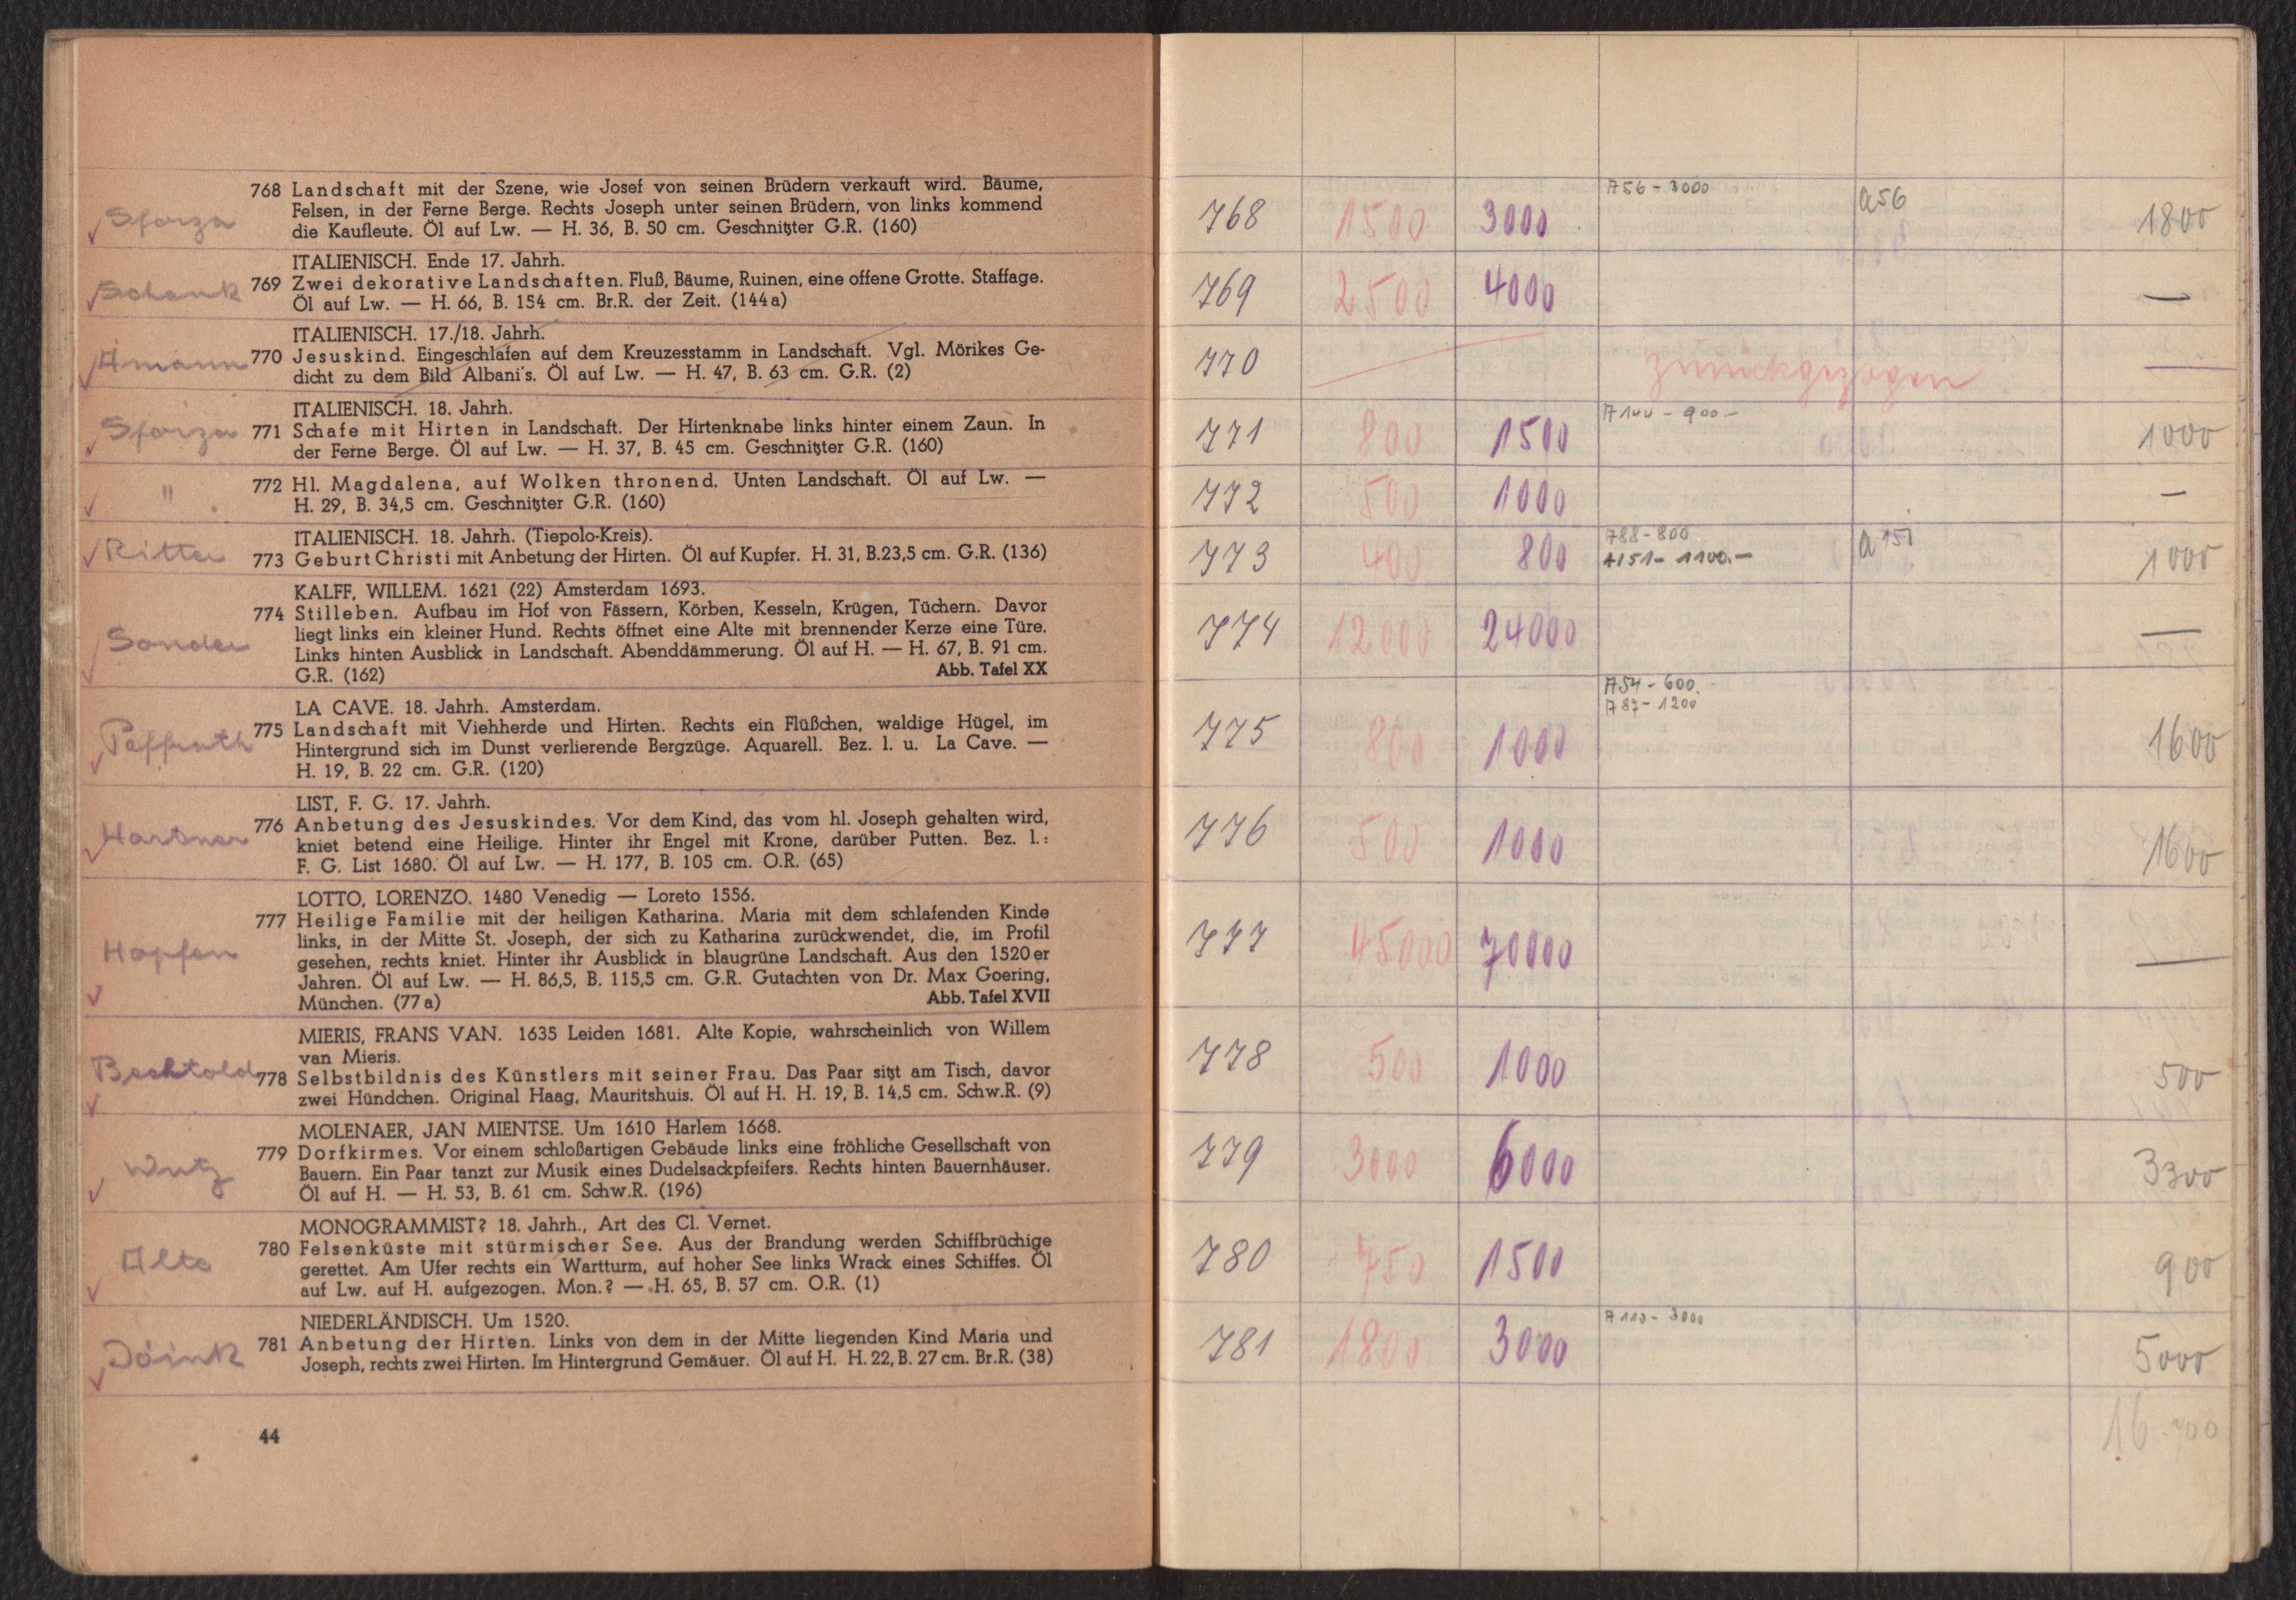 768 Landschaft mit der Szene, wie Josef von seinen Brüdern verkauft wird. Bäume,
Sforza Felsen, in der Ferne Berge. Rechts Joseph unter seinen Brüdern, von links kommend
die Kaufleute. Öl auf Lw. — H. 36, B. 50 cm. Geschnitzter G.R. (160)
ITALIENISCH. Ende 17. Jahrh.
Schenk 769 Zwei dekorative Landschaften. Fluß, Bäume, Ruinen, eine offene Grotte. Staffage.
Öl auf Lw. — H. 66, B. 154 cm. Br.R. der Zeit. (144a)
ITALIENISCH. 17./18. Jahrh.
Amann 770 Jesuskind. Eingeschlafen auf dem Kreuzesstamm in Landschaft. Vgl. Mörikes Ge-
dicht zu dem Bild Albani's. Öl auf Lw. — H. 47, B. 63 cm. G.R. (2)
ITALIENISCH. 18. Jahrh.
Sforza 771 Schafe mit Hirten in Landschaft. Der Hirtenknabe links hinter einem Zaun. In
der Ferne Berge. Öl auf Lw. — H. 37, B. 45 cm. Geschnitzter G.R. (160)
" 772 Hl. Magdalena, auf Wolken thronend. Unten Landschaft. Öl auf Lw. —
H. 29, B. 34,5 cm. Geschnitzter G.R. (160)
ITALIENISCH. 18. Jahrh. (Tiepolo-Kreis).
Ritter 773 Geburt Christi mit Anbetung der Hirten. Öl auf Kupfer. H. 31, B. 23,5 cm. G.R. (136)
KALFF, WILLEM. 1621 (22) Amsterdam 1693.
774 Stilleben. Aufbau im Hof von Fässern, Körben, Kesseln, Krügen, Tüchern. Davor
Sander liegt links ein kleiner Hund. Rechts öffnet eine Alte mit brennender Kerze eine Türe.
Links hinten Ausblick in Landschaft. Abenddämmerung. Öl auf H. — H. 67, B. 91 cm.
G.R. (162) Abb. Tafel XX
LA CAVE. 18. Jahrh. Amsterdam.
Paffrath 775 Landschaft mit Viehherde und Hirten. Rechts ein Flüßchen, waldige Hügel, im
Hintergrund sich im Dunst verlierende Bergzüge. Aquarell. Bez. l. u. La Cave. —
H. 19, B. 22 cm. G.R. (120)
LIST, F. G. 17. Jahrh.
Hartner 776 Anbetung des Jesuskindes. Vor dem Kind, das vom hl. Joseph gehalten wird,
kniet betend eine Heilige. Hinter ihr Engel mit Krone, darüber Putten. Bez. l.:
F. G. List 1680. Öl auf Lw. — H. 177, B. 105 cm. O.R. (65)
LOTTO, LORENZO. 1480 Venedig — Loreto 1556.
777 Heilige Familie mit der heiligen Katharina. Maria mit dem schlafenden Kinde
Hopfen links, in der Mitte St. Joseph, der sich zu Katharina zurückwendet, die, im Profil
gesehen, rechts kniet. Hinter ihr Ausblick in blaugrüne Landschaft. Aus den 1520er
Jahren. Öl auf Lw. — H. 86,5, B. 115,5 cm. G.R. Gutachten von Dr. Max Goering,
München. (77a) Abb. Tafel XVII
MIERIS, FRANS VAN. 1635 Leiden 1681. Alte Kopie, wahrscheinlich von Willem
van Mieris.
Bechtold 778 Selbstbildnis des Künstlers mit seiner Frau. Das Paar sitzt am Tisch, davor
zwei Hündchen. Original Haag, Mauritshuis. Öl auf H. H. 19, B. 14,5 cm. Schw.R. (9)
MOLENAER, JAN MIENTSE. Um 1610 Harlem 1668.
779 Dorfkirmes. Vor einem schloßartigen Gebäude links eine fröhliche Gesellschaft von
Wutz Bauern. Ein Paar tanzt zur Musik eines Dudelsackpfeifers. Rechts hinten Bauernhäuser.
Öl auf H. — H. 53, B. 61 cm. Schw.R. (196)
MONOGRAMMIST? 18. Jahrh., Art des Cl. Vernet.
780 Felsenküste mit stürmischer See. Aus der Brandung werden Schiffbrüchige
Alto gerettet. Am Ufer rechts ein Wartturm, auf hoher See links Wrack eines Schiffes. Öl
auf Lw. auf H. aufgezogen. Mon.? — H. 65, B. 57 cm. O.R. (1)
NIEDERLÄNDISCH. Um 1520.
781 Anbetung der Hirten. Links von dem in der Mitte liegenden Kind Maria und
Joseph, rechts zwei Hirten. Im Hintergrund Gemäuer. Öl auf H. H. 22, B. 27 cm. Br.R. (38)
44
A56 - 3000
768 1500 3000 a56 1800
769 2500 4000 —
770 zurückgezogen —
A144 - 900.-
771 800 1500 1000
772 500 1000 —
A88 - 800
773 400 800 A151 - 1100.- a151 1000
774 12000 24000 —
A54 - 600.
A87 - 1200
775 800 1000 1600
776 500 1000 1600
777 45000 70000 —
778 500 1000 500
779 3000 6000 3300
780 750 1500 900
A110 - 3000
781 1800 3000 5000
16.700